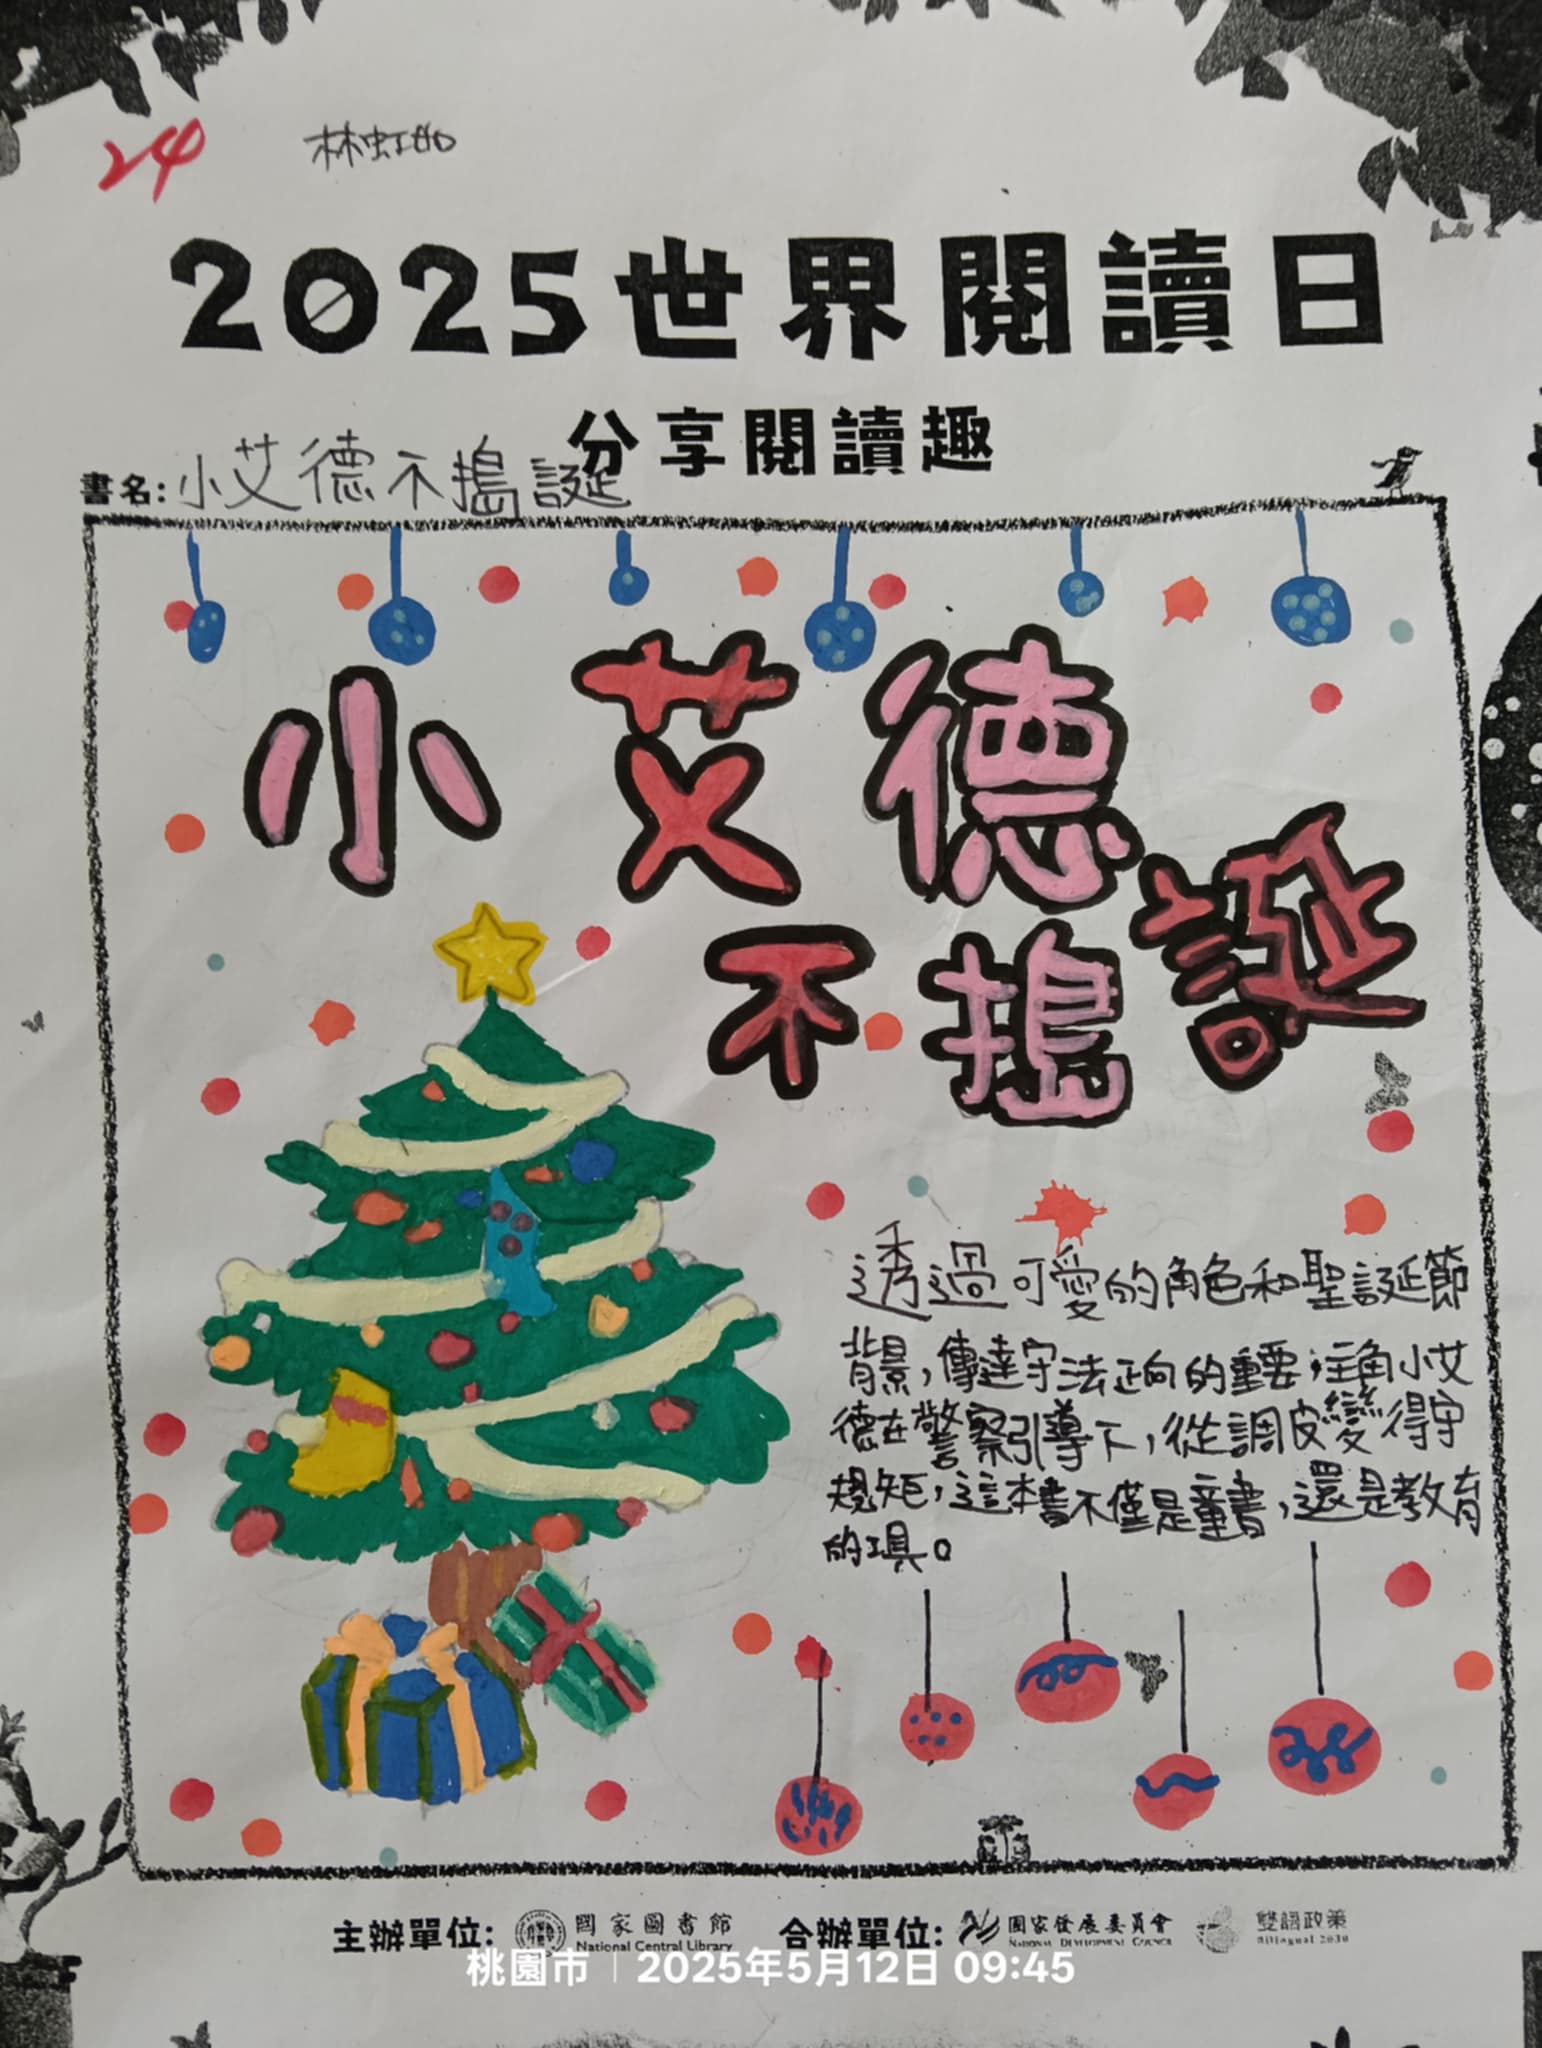 24
2025世界閱讀日
分享閱讀趣
書名:小艾德不搗誕
小艾德
不搗誕
透過可愛的角色和聖誕節
背景，傳達守法正向的重要；主角小艾
德在警察引導下，從調皮變得守
規矩，這本書不僅是童書，還是教育
的工具。
主辦單位: 國家圖書館 National Central Library 合辦單位: 國家發展委員會 National Development Council 雙語政策 Bilingual 2030
桃園市 2025年5月12日 09:45